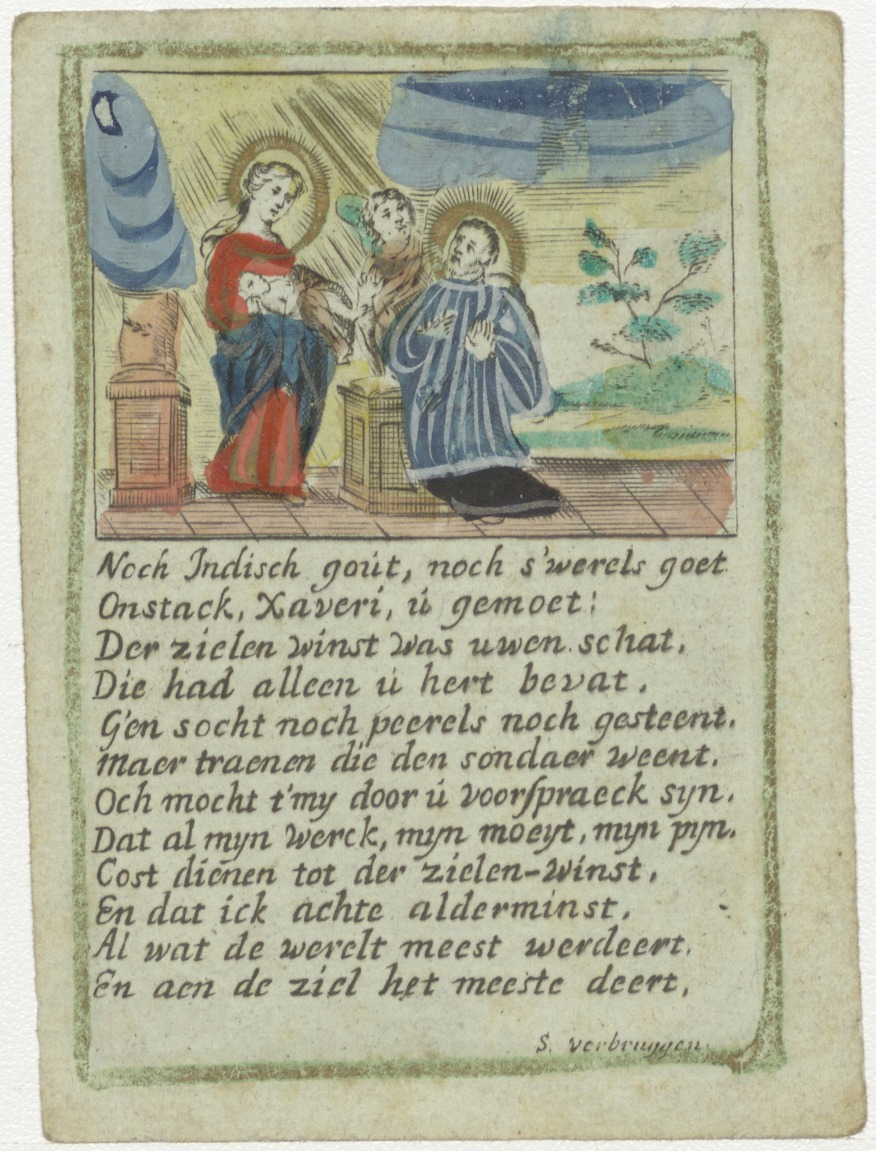 Noch Indisch goút, noch s'werels goet
Onstack, Xaveri, ú gemoet:
Der zielen winst was uwen schat,
Die had alleen ú hert bevat.
G'en socht noch peerels noch gesteent.
Maer traenen die den sondaer weent.
Och mocht t'my door ú voorſpraeck syn.
Dat al myn werck, myn moeyt, myn pyn.
Cost dienen tot der zielen-winst,
En dat ick achte alderminst.
Al wat de werelt meest werdeert,
En aen de ziel het meeste deert,
S. verbruggen.